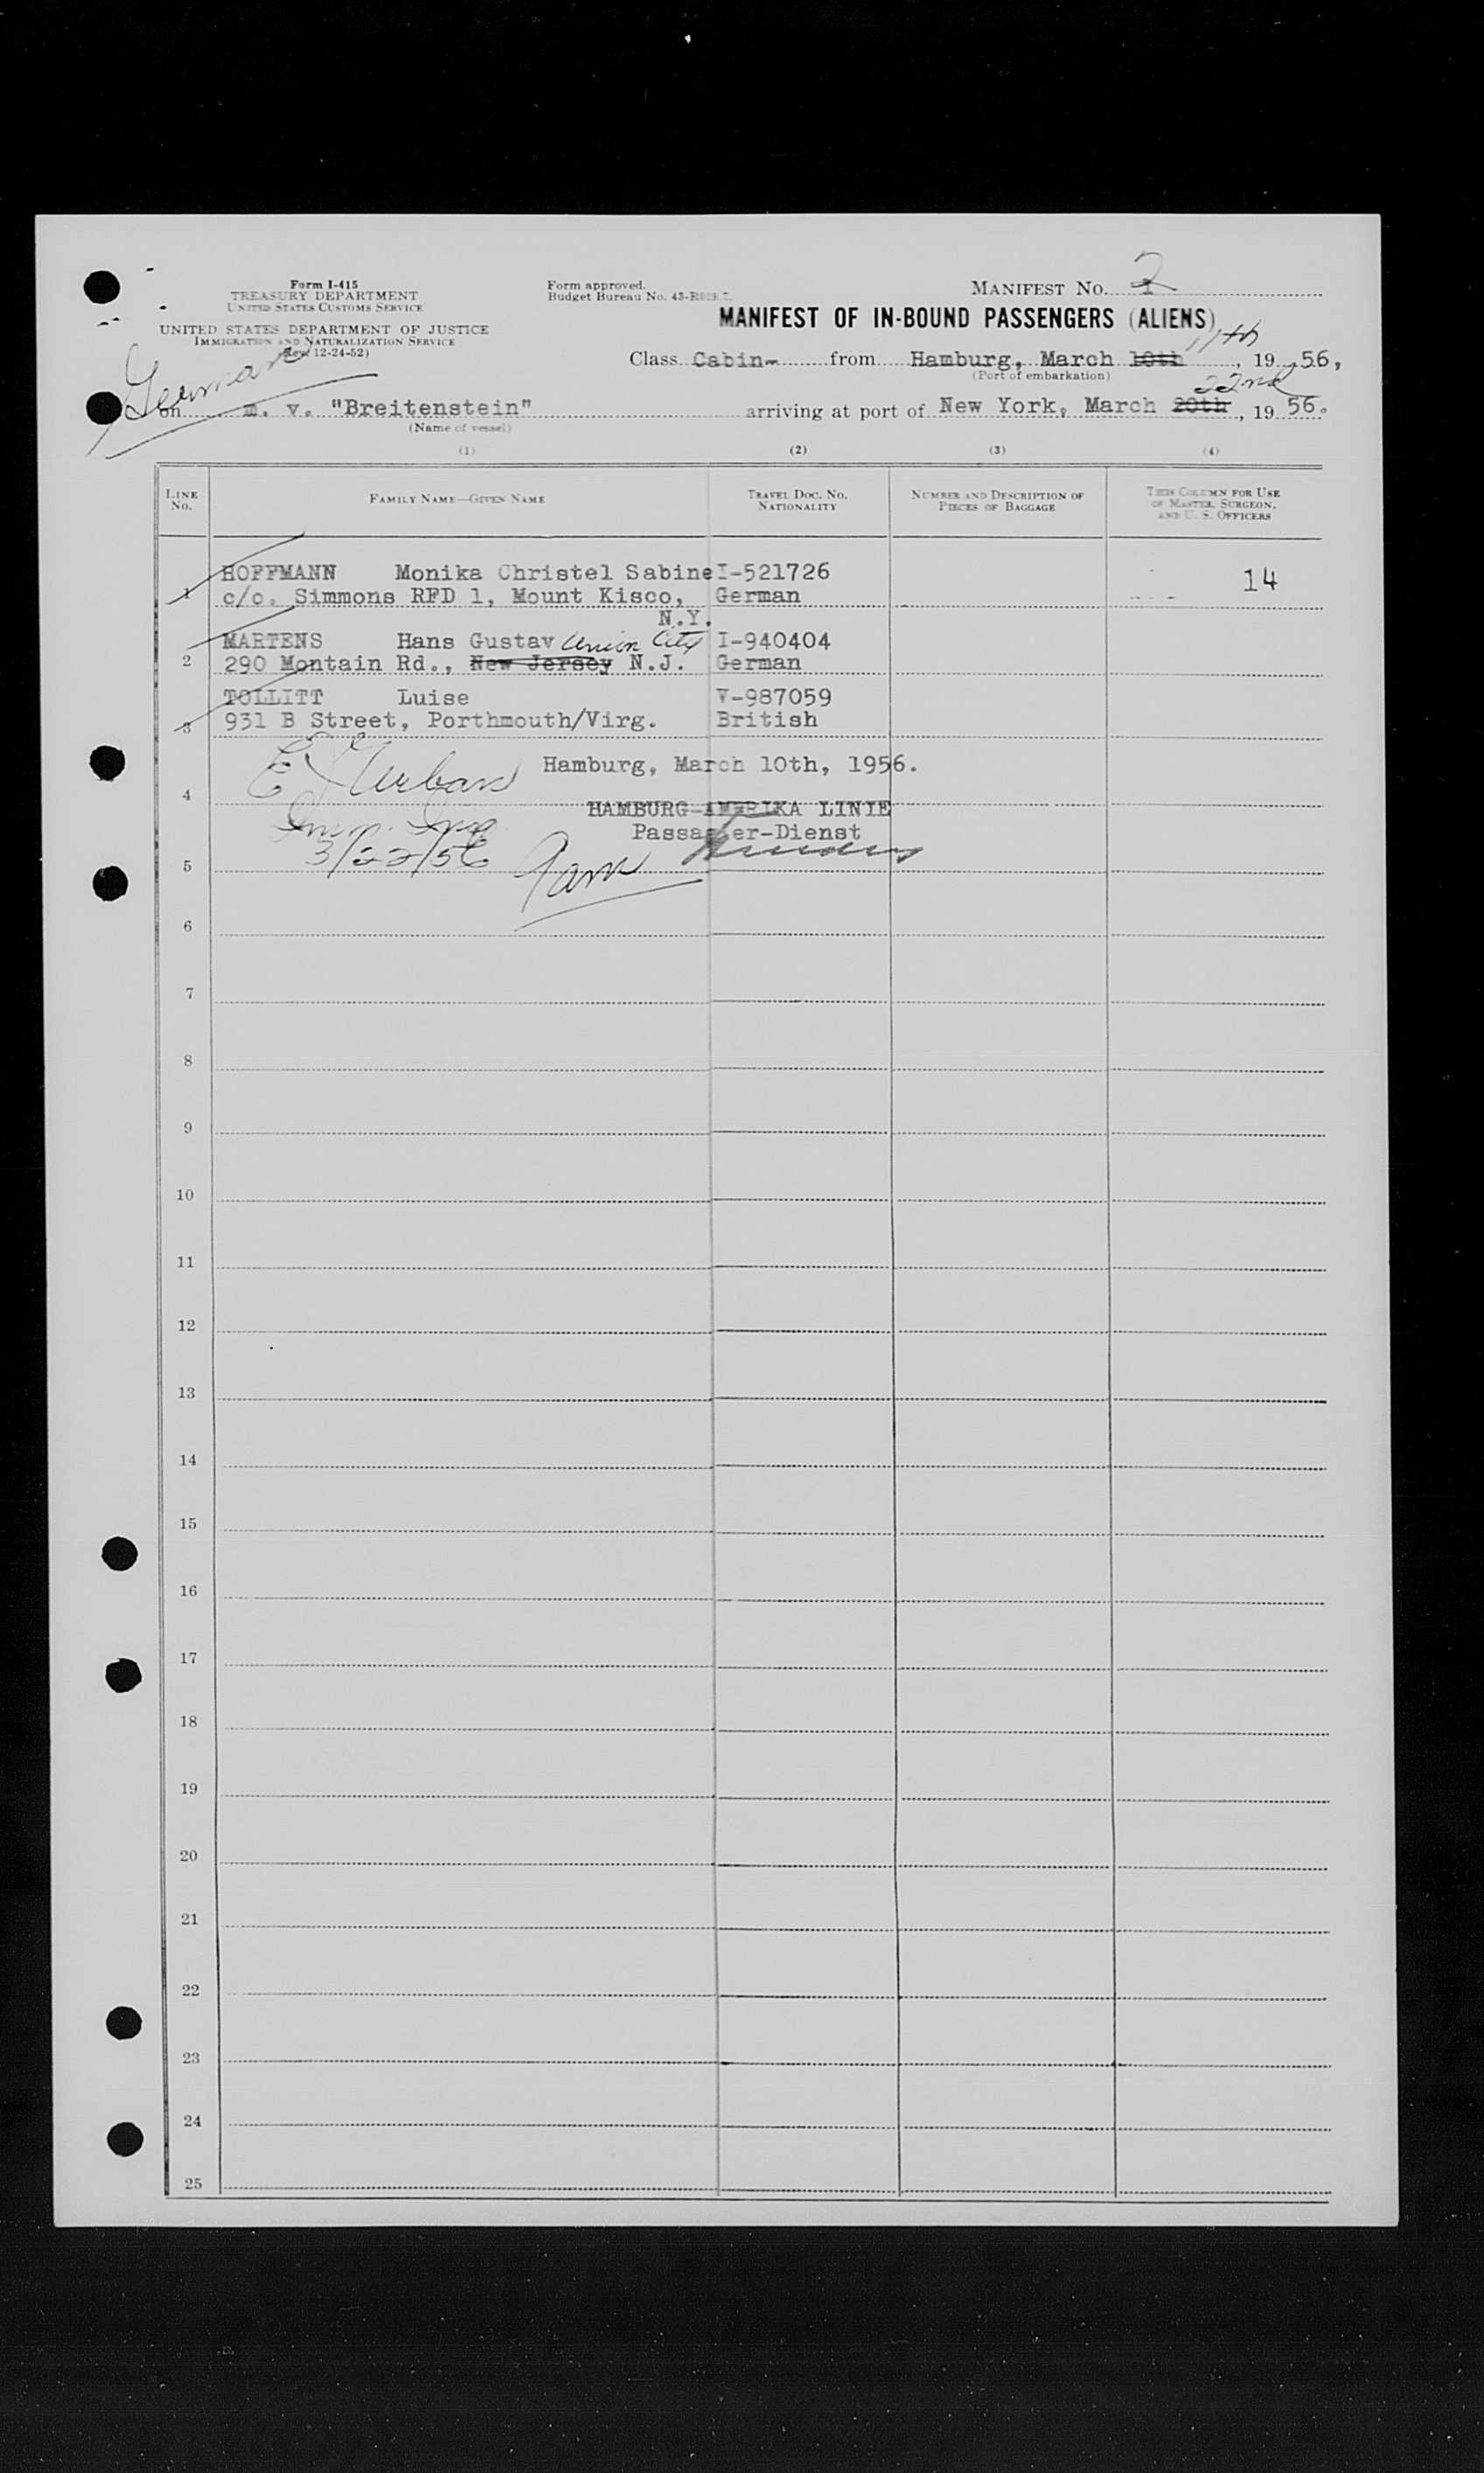 Form I-415
TREASURY DEPARTMENT
UNITED STATES CUSTOMS SERVICE
UNITED STATES DEPARTMENT OF JUSTICE
IMMIGRATION AND NATURALIZATION SERVICE
(Rev. 12-24-52)
German
Form approved.
Budget Bureau No. 43-
MANIFEST NO. 2
MANIFEST OF IN-BOUND PASSENGERS (ALIENS)
11th
Class Cabin- from Hamburg, March 10th, 19 56,
(Port of embarkation)
22nd
on m. v. "Breitenstein" arriving at port of New York, March 20th, 19 56.
(Name of vessel)
(1) (2) (3) (4)
LINE NO. FAMILY NAME—GIVEN NAME TRAVEL DOC. NO. NATIONALITY NUMBER AND DESCRIPTION OF PIECES OF BAGGAGE THIS COLUMN FOR USE OF MASTER, SURGEON, AND U. S. OFFICERS
HOFFMANN Monika Christel Sabine I-521726 14
1 c/o. Simmons RFD 1, Mount Kisco, German
N.Y.
MARTENS Hans Gustav Union City I-940404
2 290 Montain Rd., New Jersey N.J. German
TOLLITT Luise V-987059
3 931 B Street, Porthmouth/Virg. British
E Urban Hamburg, March 10th, 1956.
4 HAMBURG-AMERIKA LINIE
Imm. Insp Passagier-Dienst
3/22/56
5
6
7
8
9
10
11
12
13
14
15
16
17
18
19
20
21
22
23
24
25